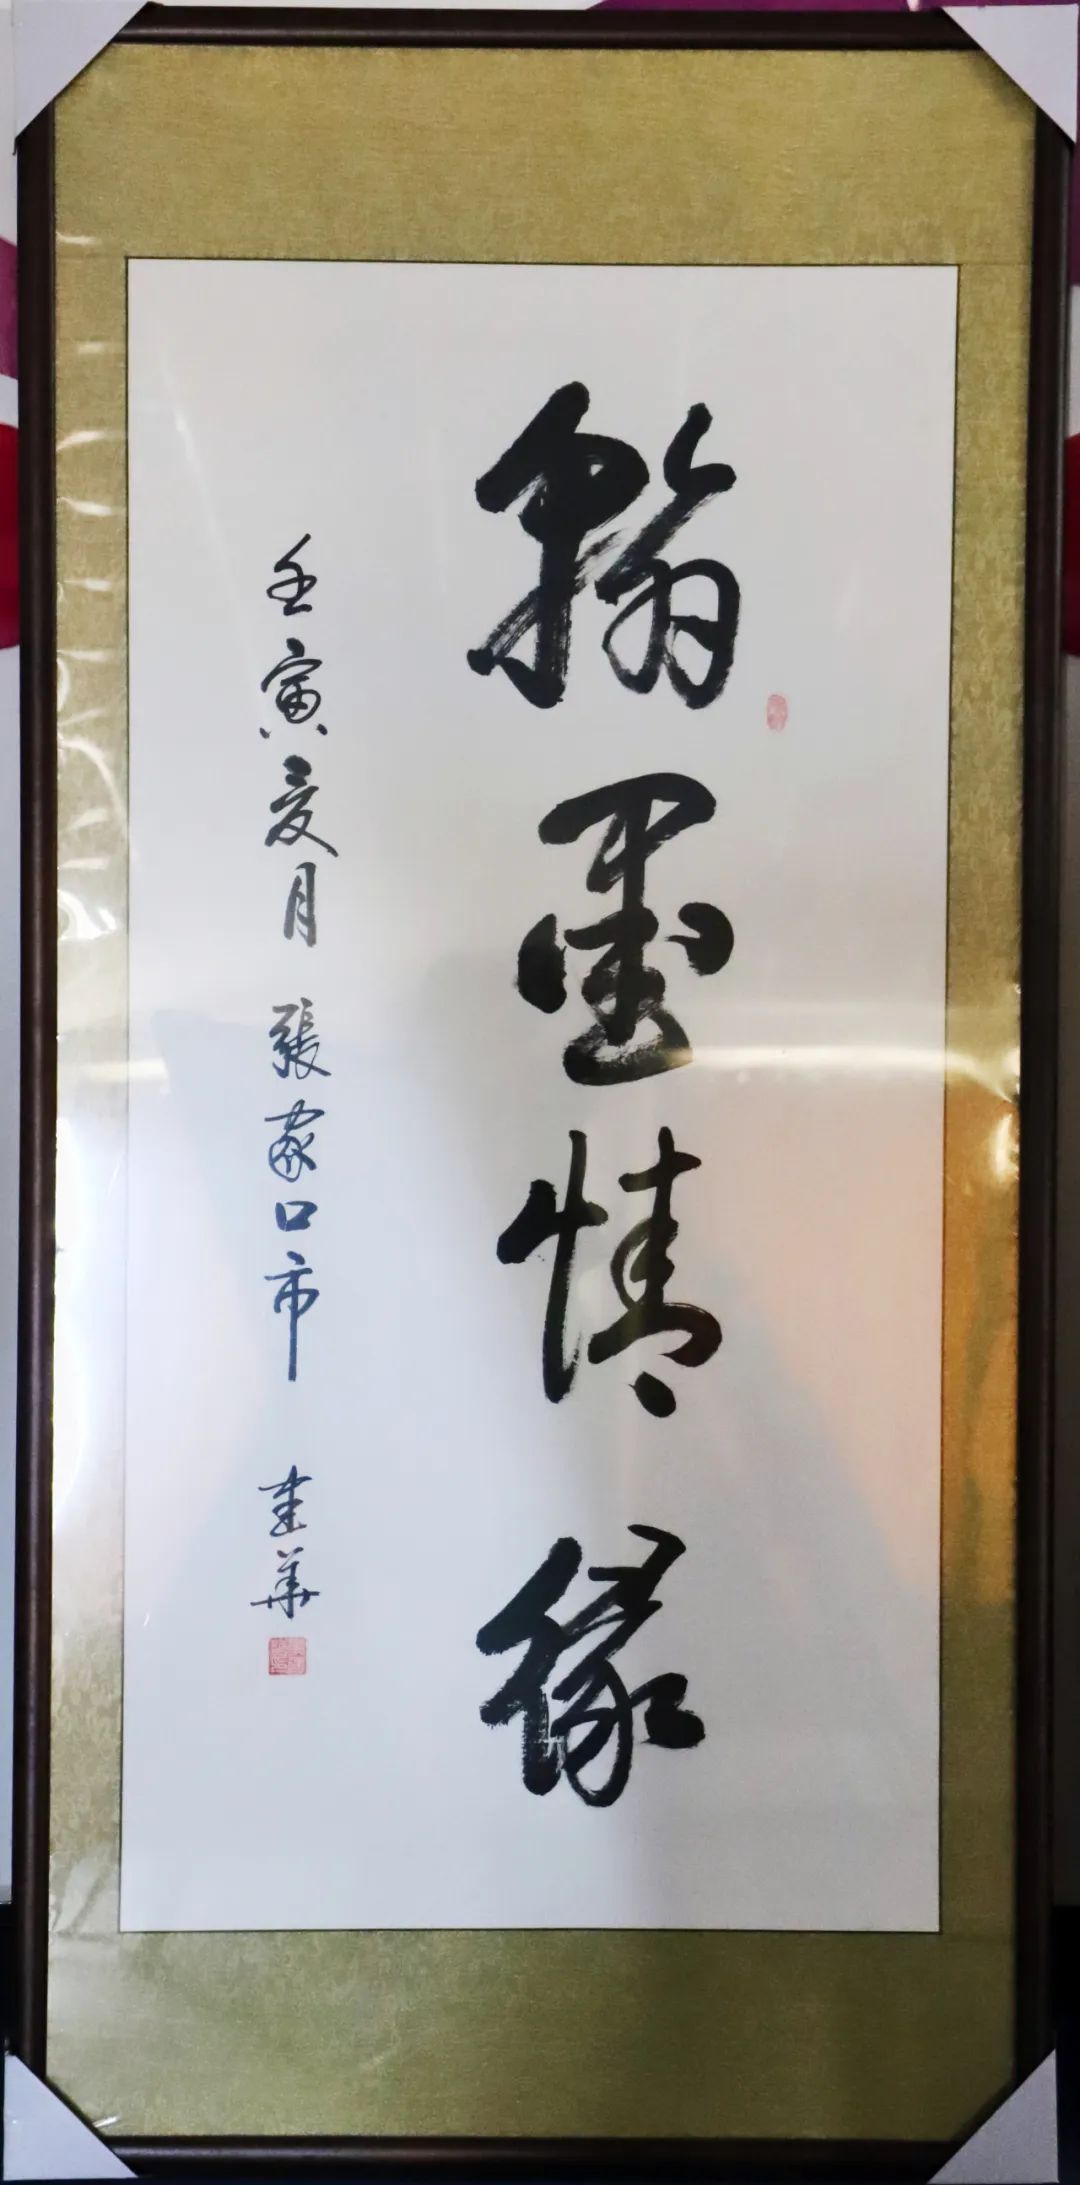 翰墨情缘
壬寅夏月 張家口市 建華